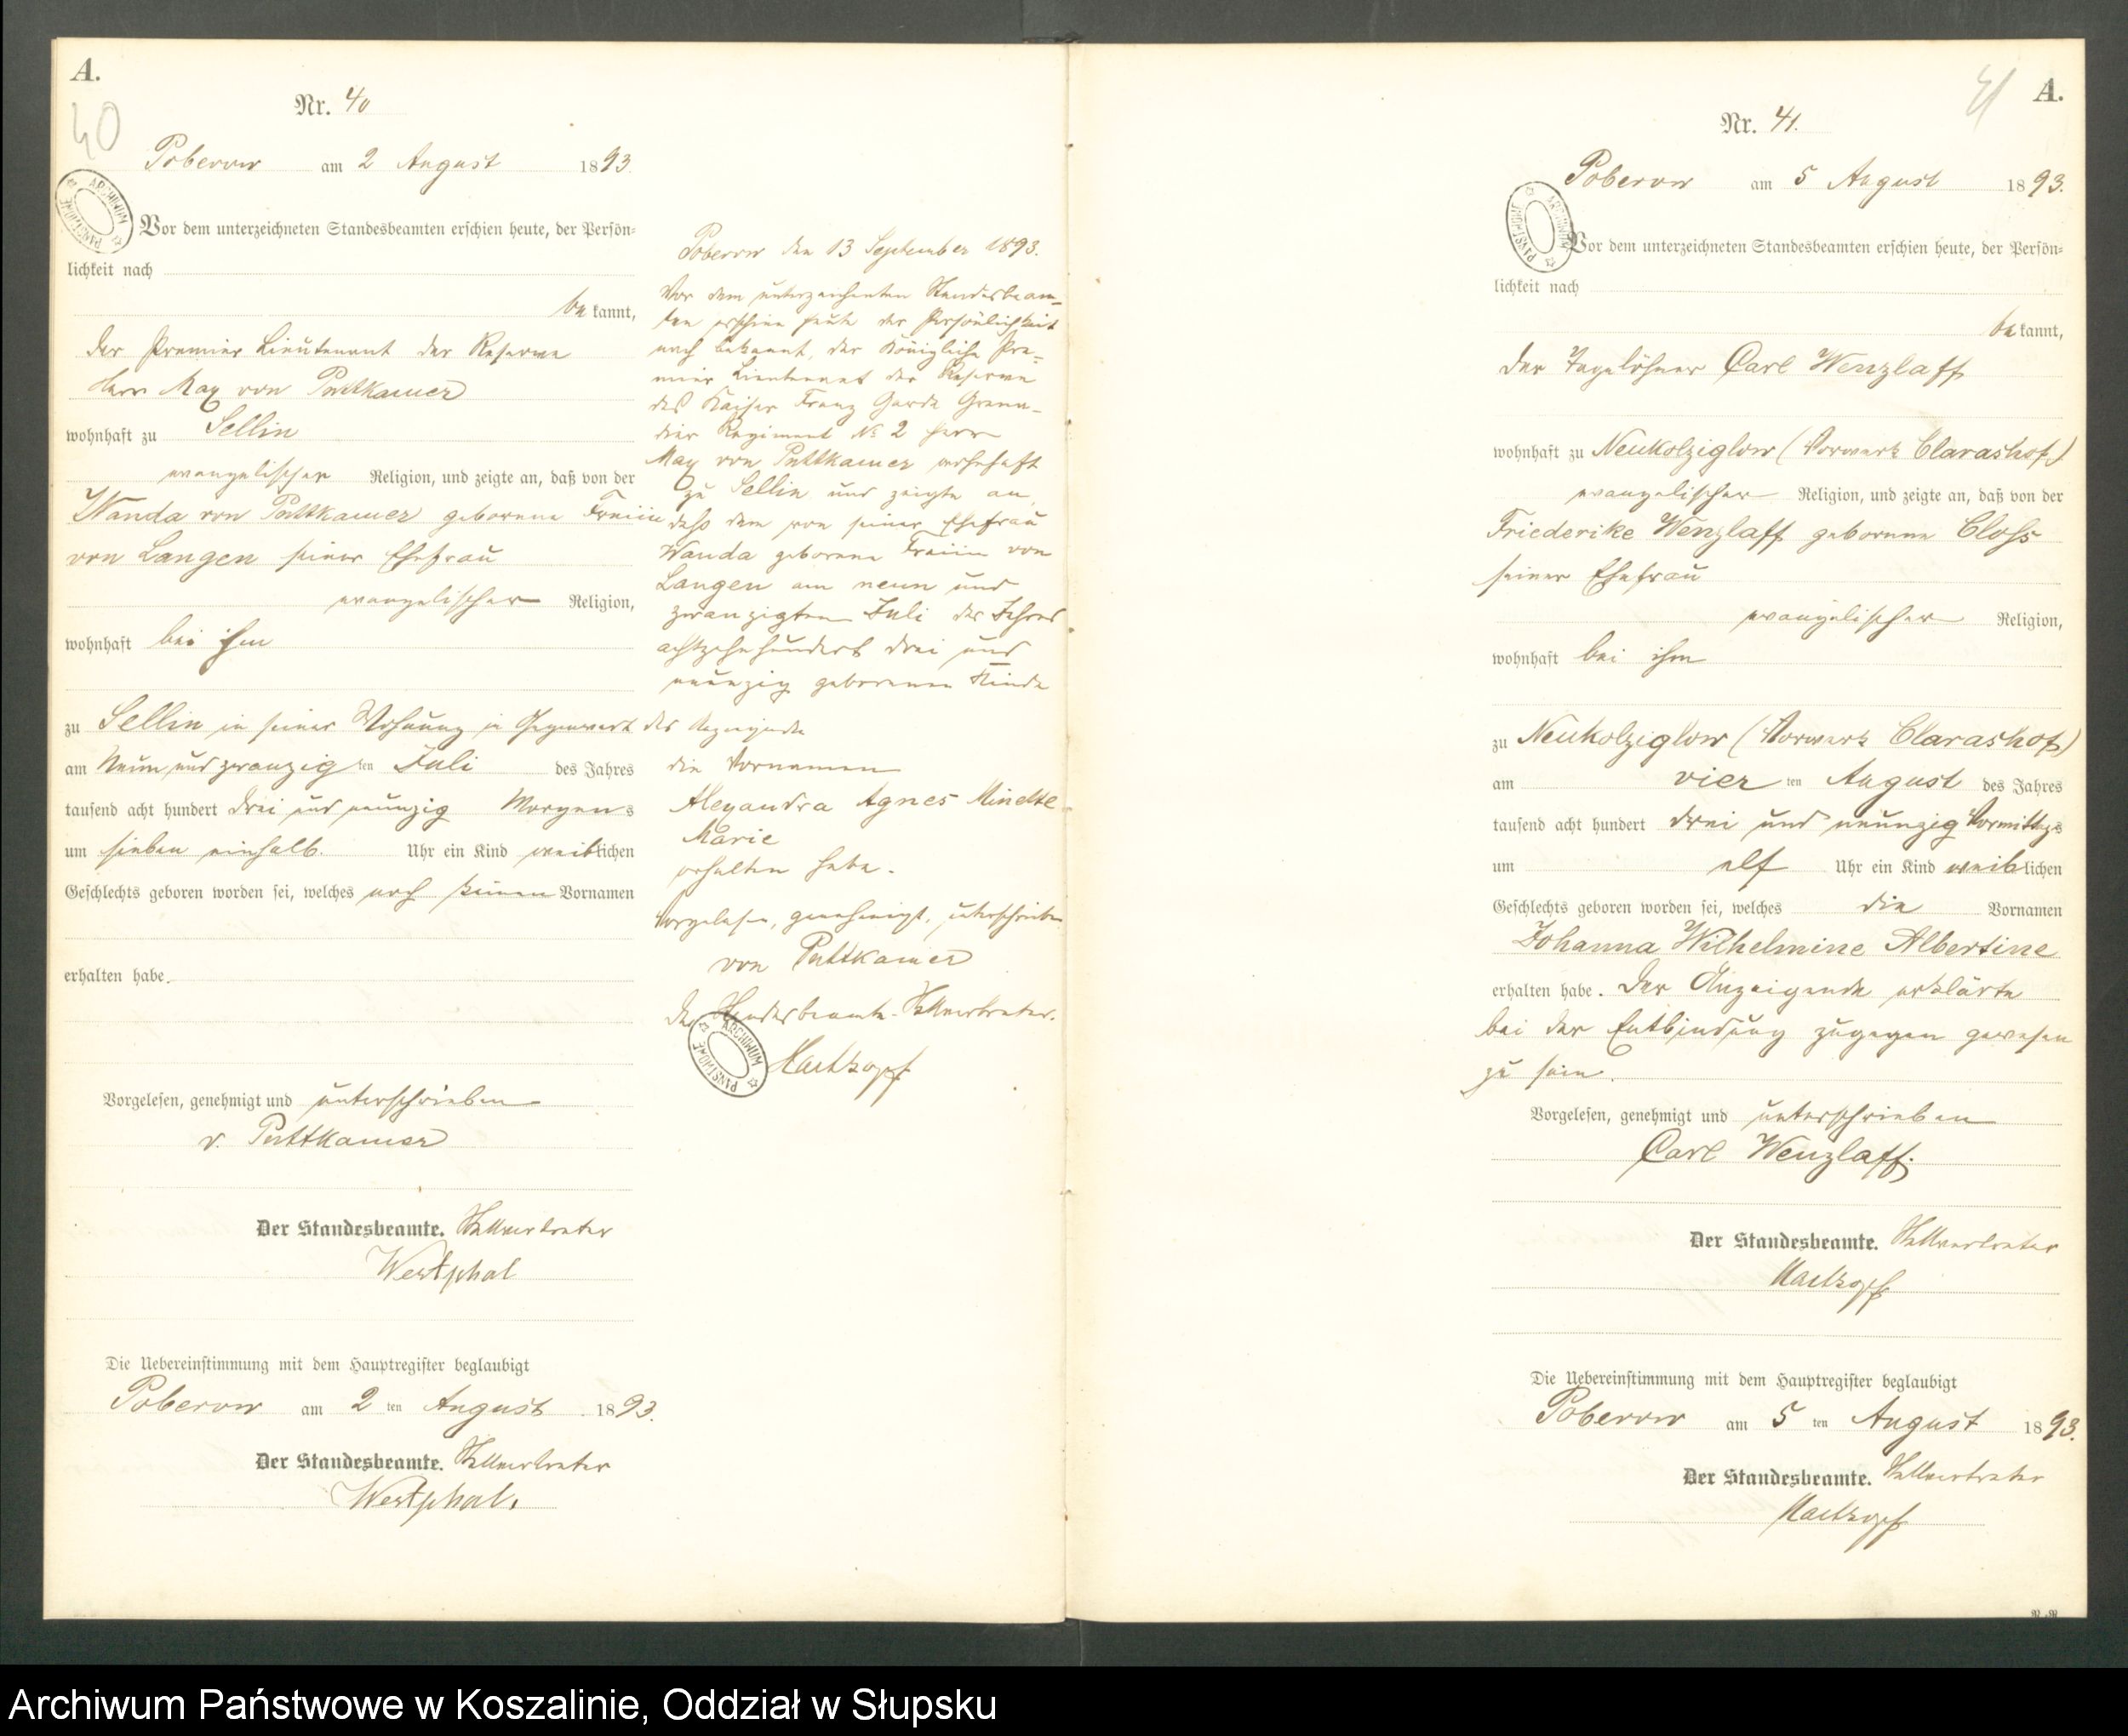 A.
40
Nr. 40
Poberow am 2 August 1893.
Vor dem unterzeichneten Standesbeamten erschien heute, der Persön-
lichkeit nach
bekannt,
der Premier Lieutenant der Reserve
Herr Max von Puttkamer
wohnhaft zu Sellin
evangelischer Religion, und zeigte an, daß von der
Wanda von Puttkamer geborene Freiin
von Langen seiner Ehefrau
evangelischer Religion,
wohnhaft bei ihm
zu Sellin in seiner Wohnung in Gegenwart des
am Neun und zwanzigten Juli des Jahres
tausend acht hundert drei und neunzig Morgens
um sieben einhalb. Uhr ein Kind weiblichen
Geschlechts geboren worden sei, welches noch keinen Vornamen
erhalten habe.
Vorgelesen, genehmigt und unterschrieben
v. Puttkamer
Der Standesbeamte. Stellvertreter
Westphal
Die Uebereinstimmung mit dem Hauptregister beglaubigt
Poberow am 2 ten August 1893.
Der Standesbeamte. Stellvertreter
Westphal.
Poberow den 13 September 1893.
Vor dem unterzeichneten Standesbeam-
ten erschien heute der Persönlichkeit
nach bekannt, der Königliche Pre-
mier Lieutenant der Reserve
des Kaiser Franz Garde Grena-
dier Regiment № 2 Herr
Max von Puttkamer wohnhaft
zu Sellin und zeigte an,
daß dem von seiner Ehefrau
Wanda geborene Freiin von
Langen am neun und
zwanzigten Juli des Jahres
achtzehnhundert drei und
neunzig geborenen Kinde
die Vornamen
Alexandra Agnes Minette
Marie
erhalten habe.
Vorgelesen, genehmigt, unterschrieben
von Puttkamer
Der Standesbeamte. Stellvertreter.
Hackkopf
ARCHIWUM PAŃSTWOWE
A.
41
Nr. 41.
Poberow am 5 August 1893.
Vor dem unterzeichneten Standesbeamten erschien heute, der Persön-
lichkeit nach
bekannt,
der Tagelöhner Carl Wenzlaff
wohnhaft zu Neukolziglow (Vorwerk Clarashof)
evangelischer Religion, und zeigte an, daß von der
Friederike Wenzlaff geborene Closs
seiner Ehefrau
evangelischer Religion,
wohnhaft bei ihm
zu Neukolziglow (Vorwerk Clarashof)
am vier ten August des Jahres
tausend acht hundert drei und neunzig Vormittags
um elf Uhr ein Kind weiblichen
Geschlechts geboren worden sei, welches die Vornamen
Johanna Wilhelmine Albertine
erhalten habe. Der Anzeigende erklärte
bei der Entbindung zugegen gewesen
zu sein.
Vorgelesen, genehmigt und unterschrieben
Carl Wenzlaff.
Der Standesbeamte. Stellvertreter
Die Uebereinstimmung mit dem Hauptregister beglaubigt
Poberow am 5 ten August 1893.
Der Standesbeamte. Stellvertreter
Archiwum Państwowe w Koszalinie, Oddział w Słupsku